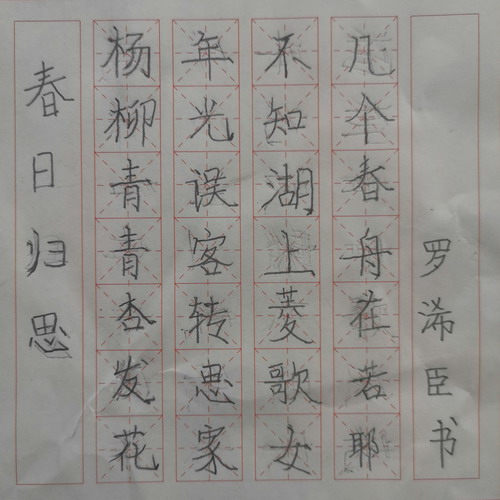 春日归思
杨柳青青杏发花
年光误客转思家
不知湖上菱歌女
几个春舟在若耶
罗浠臣书